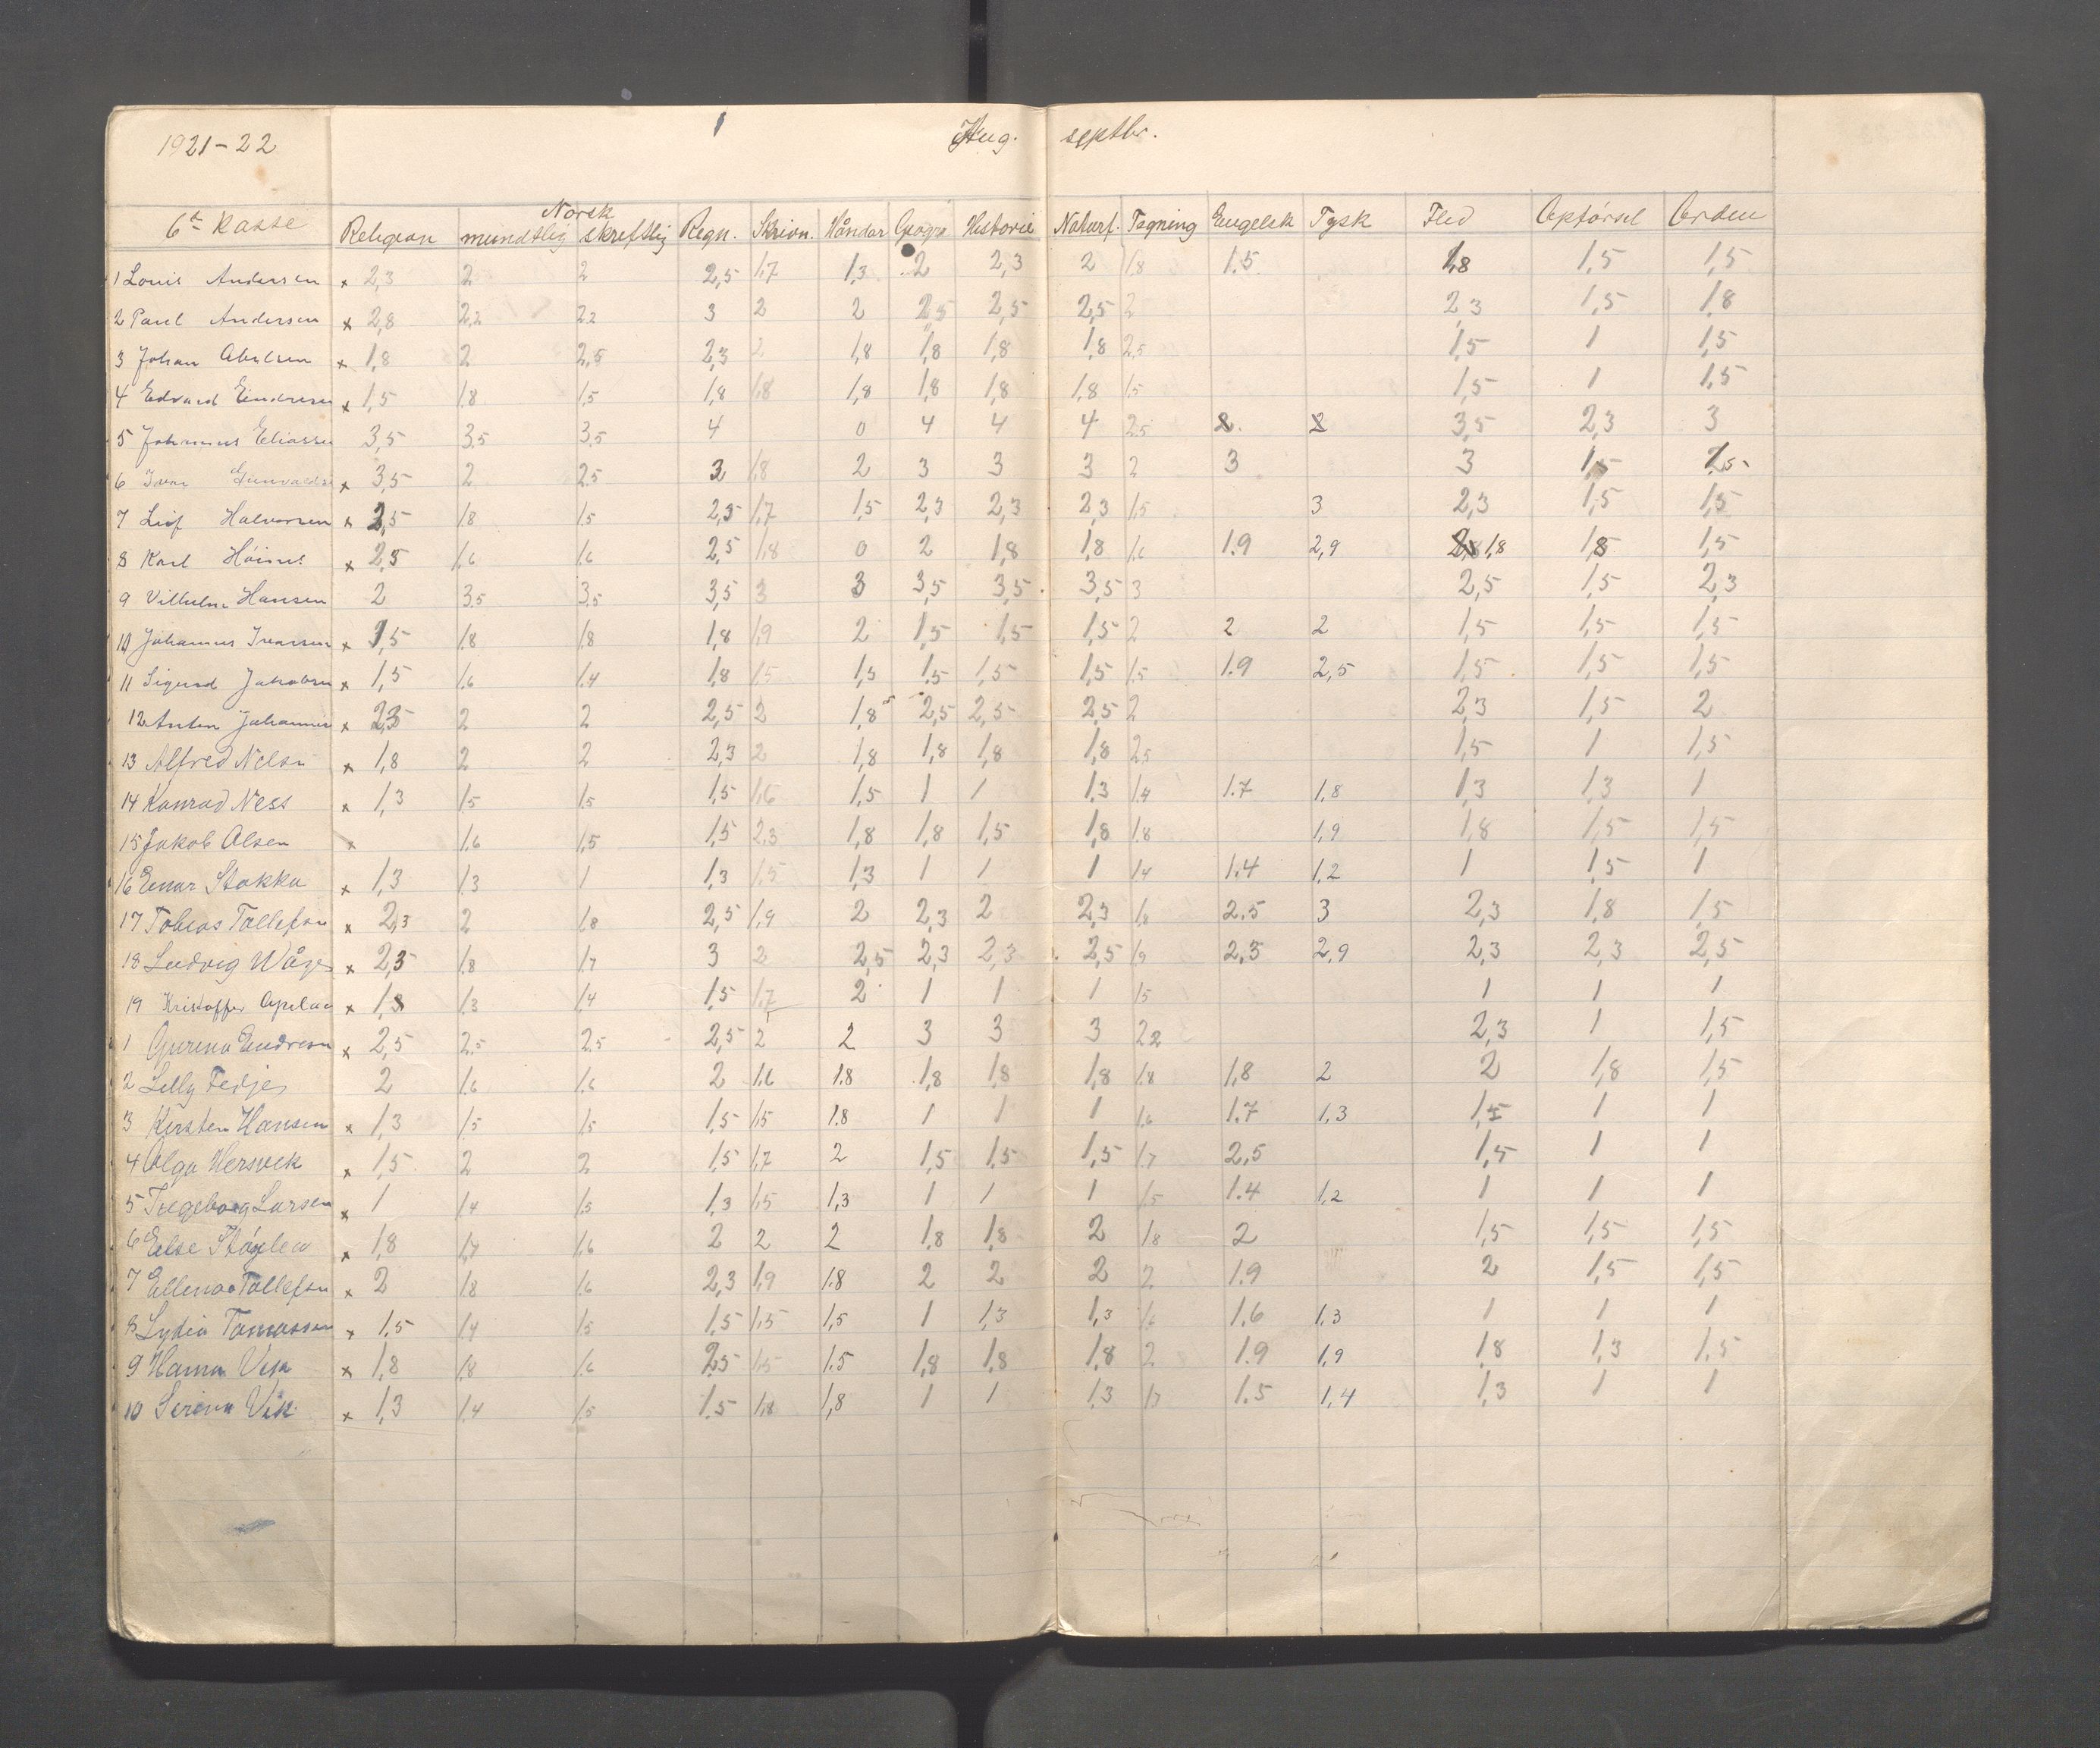 1921-22 Aug. septbr.
Norsk
6te Kasse Religion mundtlig skreftlig Regn. Skrivn. Håndar Geogr Historie Naturf. Tegning Engelsk Tysk Flid Opførsel Orden
1 Louis Andersen x 2,3 2 2 2,5 1,7 1,3 2 2,3 2 1.8 1.5 1,8 1,5 1,5
2 Paul Andersen x 2,8 2,2 2,2 3 2 2 2,5 2,5 2,5 2 2,3 1,5 1,8
3 Johan x 1,8 2 2,5 2,3 2 1,8 1,8 1,8 1,8 2,5 1,5 1 1,5
4 Edvard Eindresen x 1,5 1.8 1,5 1,8 1,8 1,8 1,8 1,8 1,8 1.5 1,5 1 1,5
5 Johannes Eliassen 3,5 3,5 3,5 4 0 4 4 4 2.5 3,5 2,3 3
6 x 3,5 2 2.5 3 1,8 2 3 3 3 2 3 3 1,5
7 Leif Halvorsen x 2,5 1.8 1.5 2,5 1,7 1,5 2,3 2,3 2,3 1,5 3 2,3 1,5 1,5
8 Karl x 2,5 1,6 1,6 2,5 1,8 0 2 1,8 1,8 1,6 1.9 2,9 1,8 1,8 1,5
9 Vilhelm Hansen 2 3,5 3,5 3,5 3 3 3,5 3,5 3,5 3 2,5 1,5 2,3
10 Johannes Ivarsen x 1,5 1.8 1.8 1,8 1,9 2 1,5 1,5 1,5 2 2 2 1,5 1,5 1,5
11 Sigurd Jakobsen x 1,5 1.6 1.4 1,8 1,5 1,5 1.5 1,5 1,5 1.5 1.9 2,5 1,5 1,5 1,5
12 Anton Johannesen x 2,3 2 2 2,5 2 1,8 2,5 2,5 2,5 2 2,3 1,5 2
13 Alfred Nelsn x 1,8 2 2 2,3 2 1,8 1,8 1,8 1,8 2,5 1,5 1 1,5
14 Konrad Ness x 1,3 1.5 1.5 1,5 1,6 1,5 1 1 1.3 1.4 1.7 1,8 1,3 1,3 1
15 Jakob Olsen x 1.6 1,5 1,5 2,3 1,8 1,8 1,5 1,8 1.8 1,9 1,8 1,5 1,5
16 Einar Stokka x 1,3 1.3 1 1,3 1,5 1,3 1 1 1 1.4 1.4 1,2 1 1,5 1
17 Tobias Tollefsn x 2,3 2 1.8 2,5 1,9 2 2,3 2 2,3 1,8 2.5 3 2,3 1,8 1,5
18 Ludvig Våge x 2,3 1.8 1.7 3 2 2,5 2,3 2,3 2,5 1,9 2,5 2,9 2,3 2,3 2,5
19 Kristoffer x 1,8 1.3 1.4 1,5 1,7 2 1 1 1 1.5 1 1 1
1 Gurina Endresen x 2,5 2.5 2.5 2,5 2 2 3 3 3 2,2 2,3 1 1,5
2 Lilly Tedjes 2 1.6 1.6 2 1.6 1.8 1,8 1,8 1,8 1.8 1,8 2 2 1,8 1,5
3 Kirsten Hansen x 1,3 1.5 1.5 1,5 1,5 1.8 1 1 1 1,6 1.7 1,3 1,5 1 1
4 Olga Hersvek x 1,5 2 2 1,5 1,7 2 1,5 1,5 1,5 1,7 2,5 1,5 1 1
5 Ingeborg Larsen x 1 1.4 1.5 1,3 1,5 1,3 1 1 1 1.5 1.4 1,2 1 1 1
6 Else Støylen x 1,8 1,7 1,6 2 2 2 1,8 1,8 2 1.8 2 1,5 1,5 1,5
7 Ellena Tollefsn x 2 1.8 1.6 2,3 1,9 1.8 2 2 2 2 1.9 2 1,5 1,5
8 Lydia Tomassen x 1.5 1.4 1.5 1,5 1,5 1,5 1 1,3 1,3 1,6 1.6 1,3 1 1 1
9 Hanna Vik x 1,8 1,8 1,6 2,5 1,5 1.5 1,8 1,8 1,8 2 1.9 1,9 1,8 1,3 1,5
10 Serina Vik x 1,3 1.4 1.5 1.5 1,8 1,8 1 1 1.3 1.7 1.5 1,4 1,3 1 1